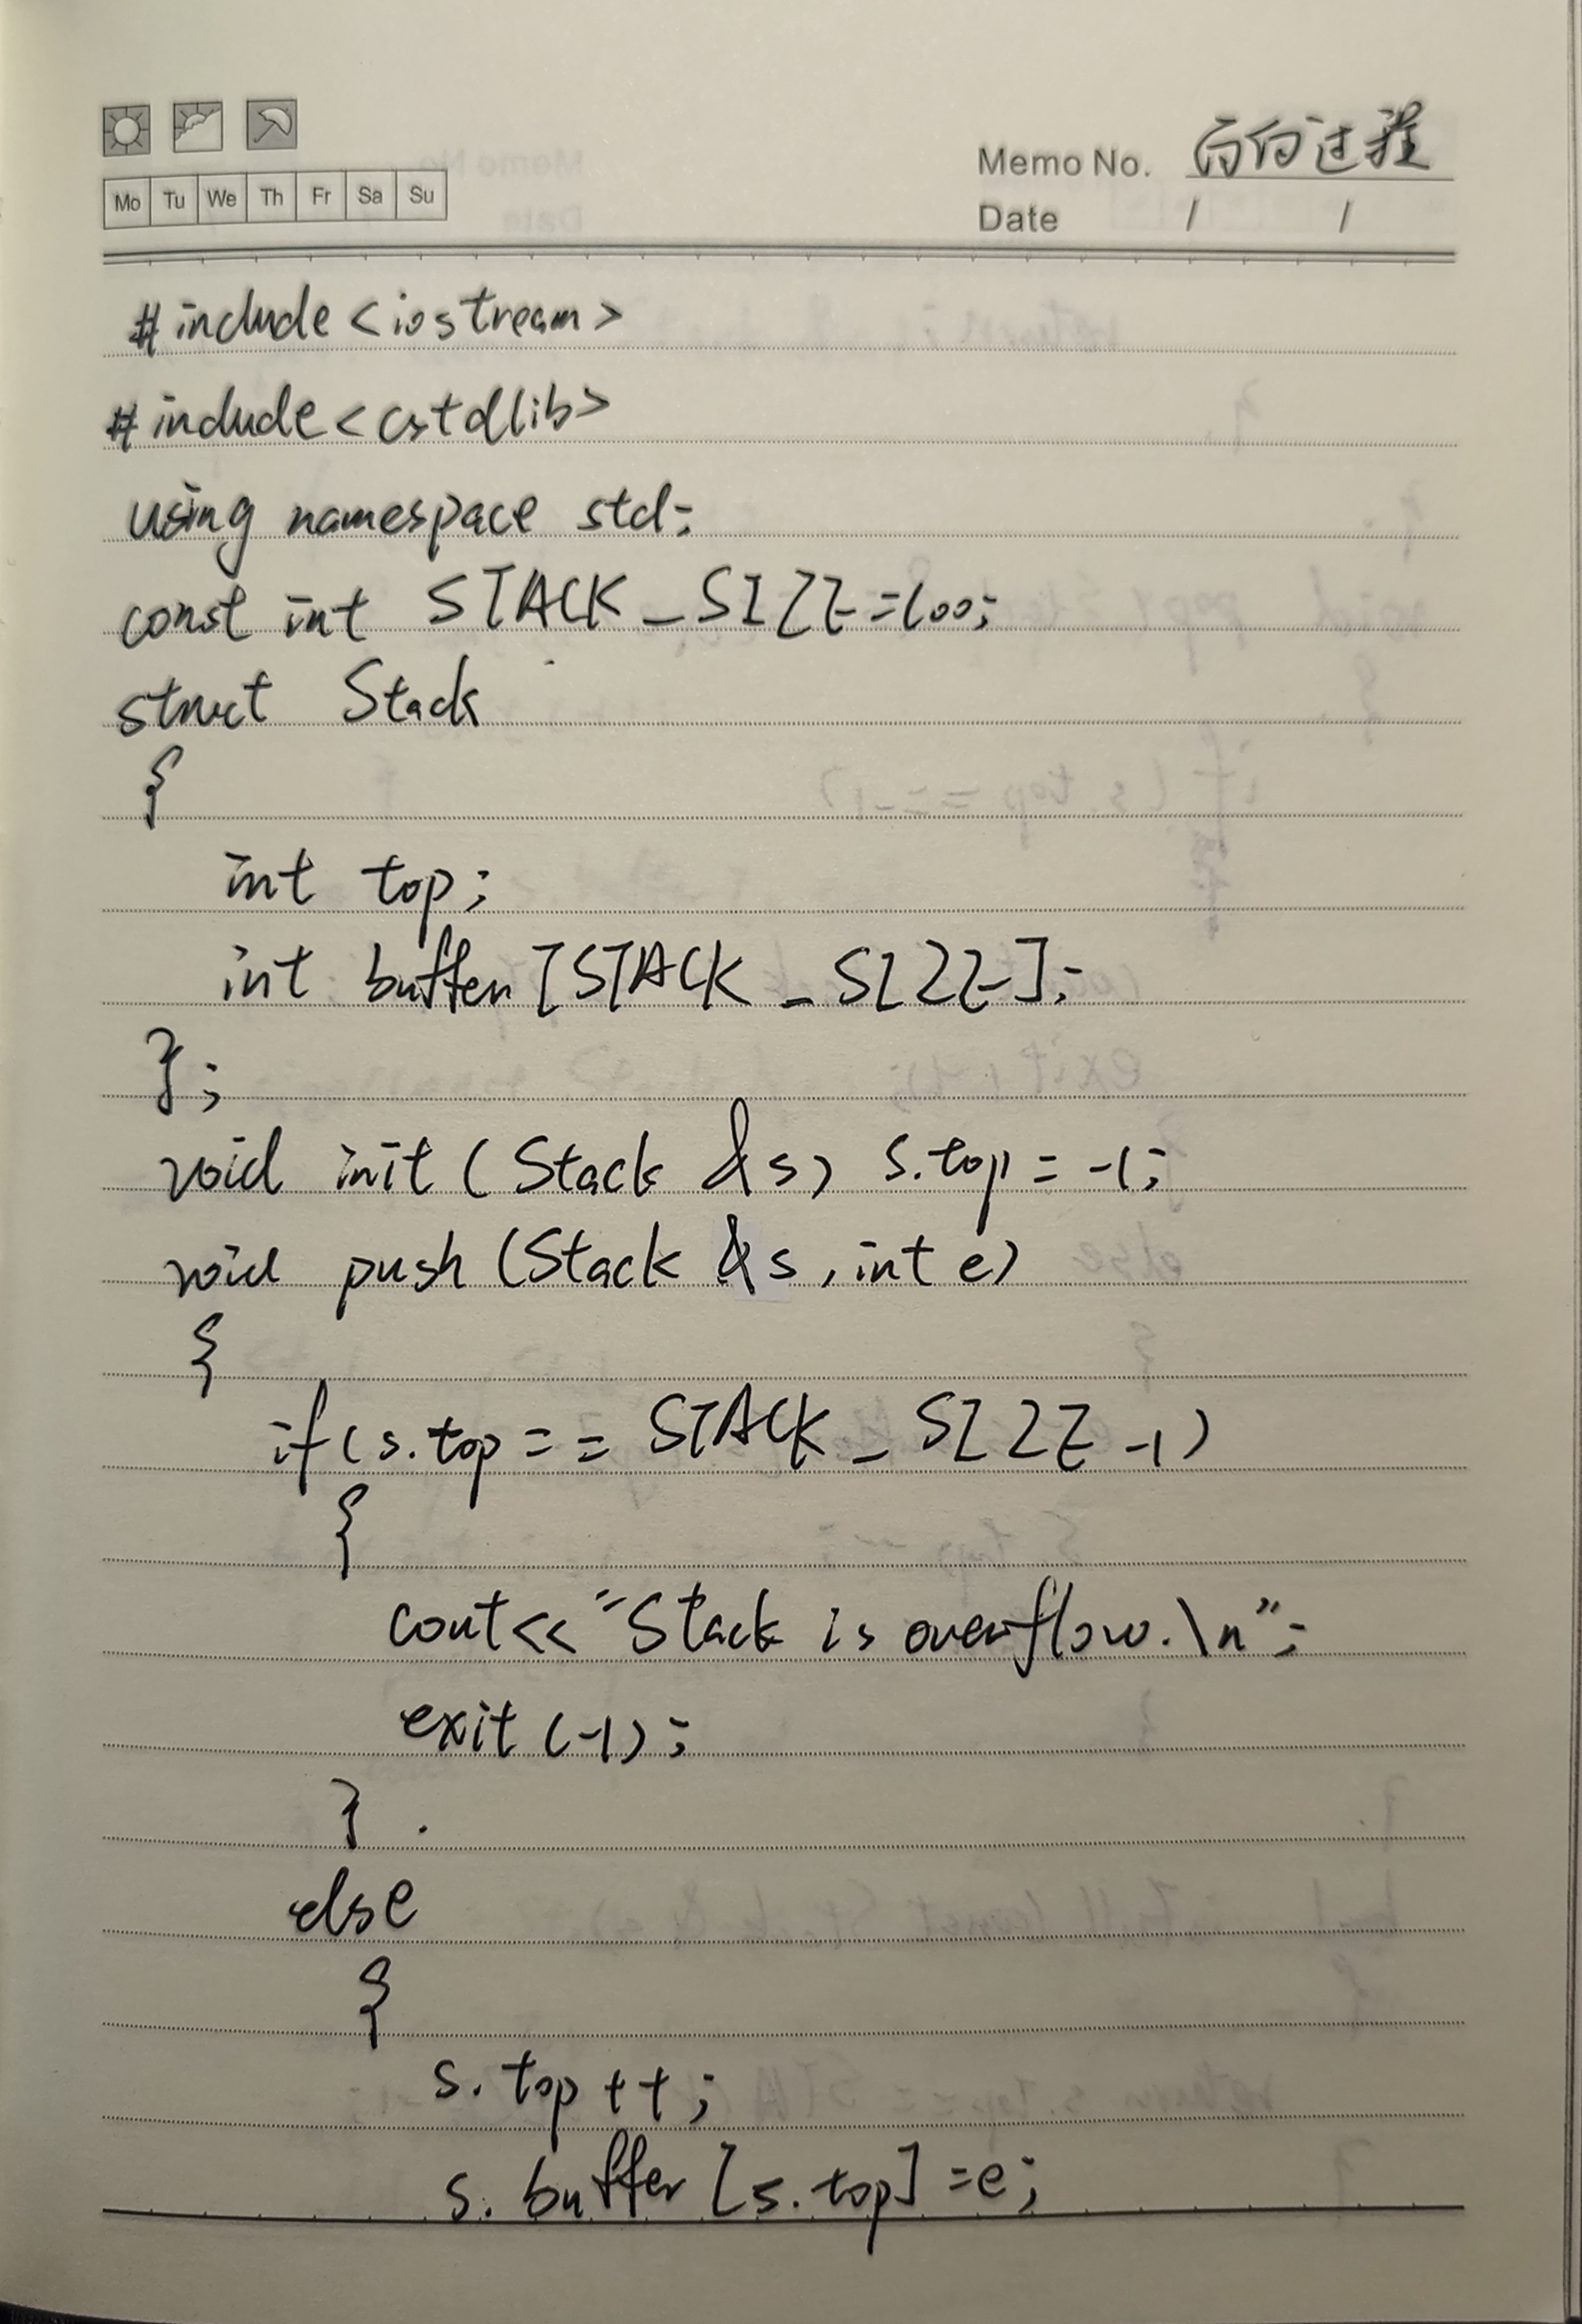 Mo Tu We Th Fr Sa Su
Memo No. 面向过程
Date / /
#include<iostream>
#include<cstdlib>
using namespace std;
const int STACK_SIZE=100;
struct Stack
{
int top;
int buffer[STACK_SIZE];
};
void init(Stack &s) s.top=-1;
void push(Stack &s,int e)
{
if(s.top==STACK_SIZE-1)
{
cout<<"Stack is overflow.\n";
exit(-1);
}
else
{
s.top++;
s.buffer[s.top]=e;